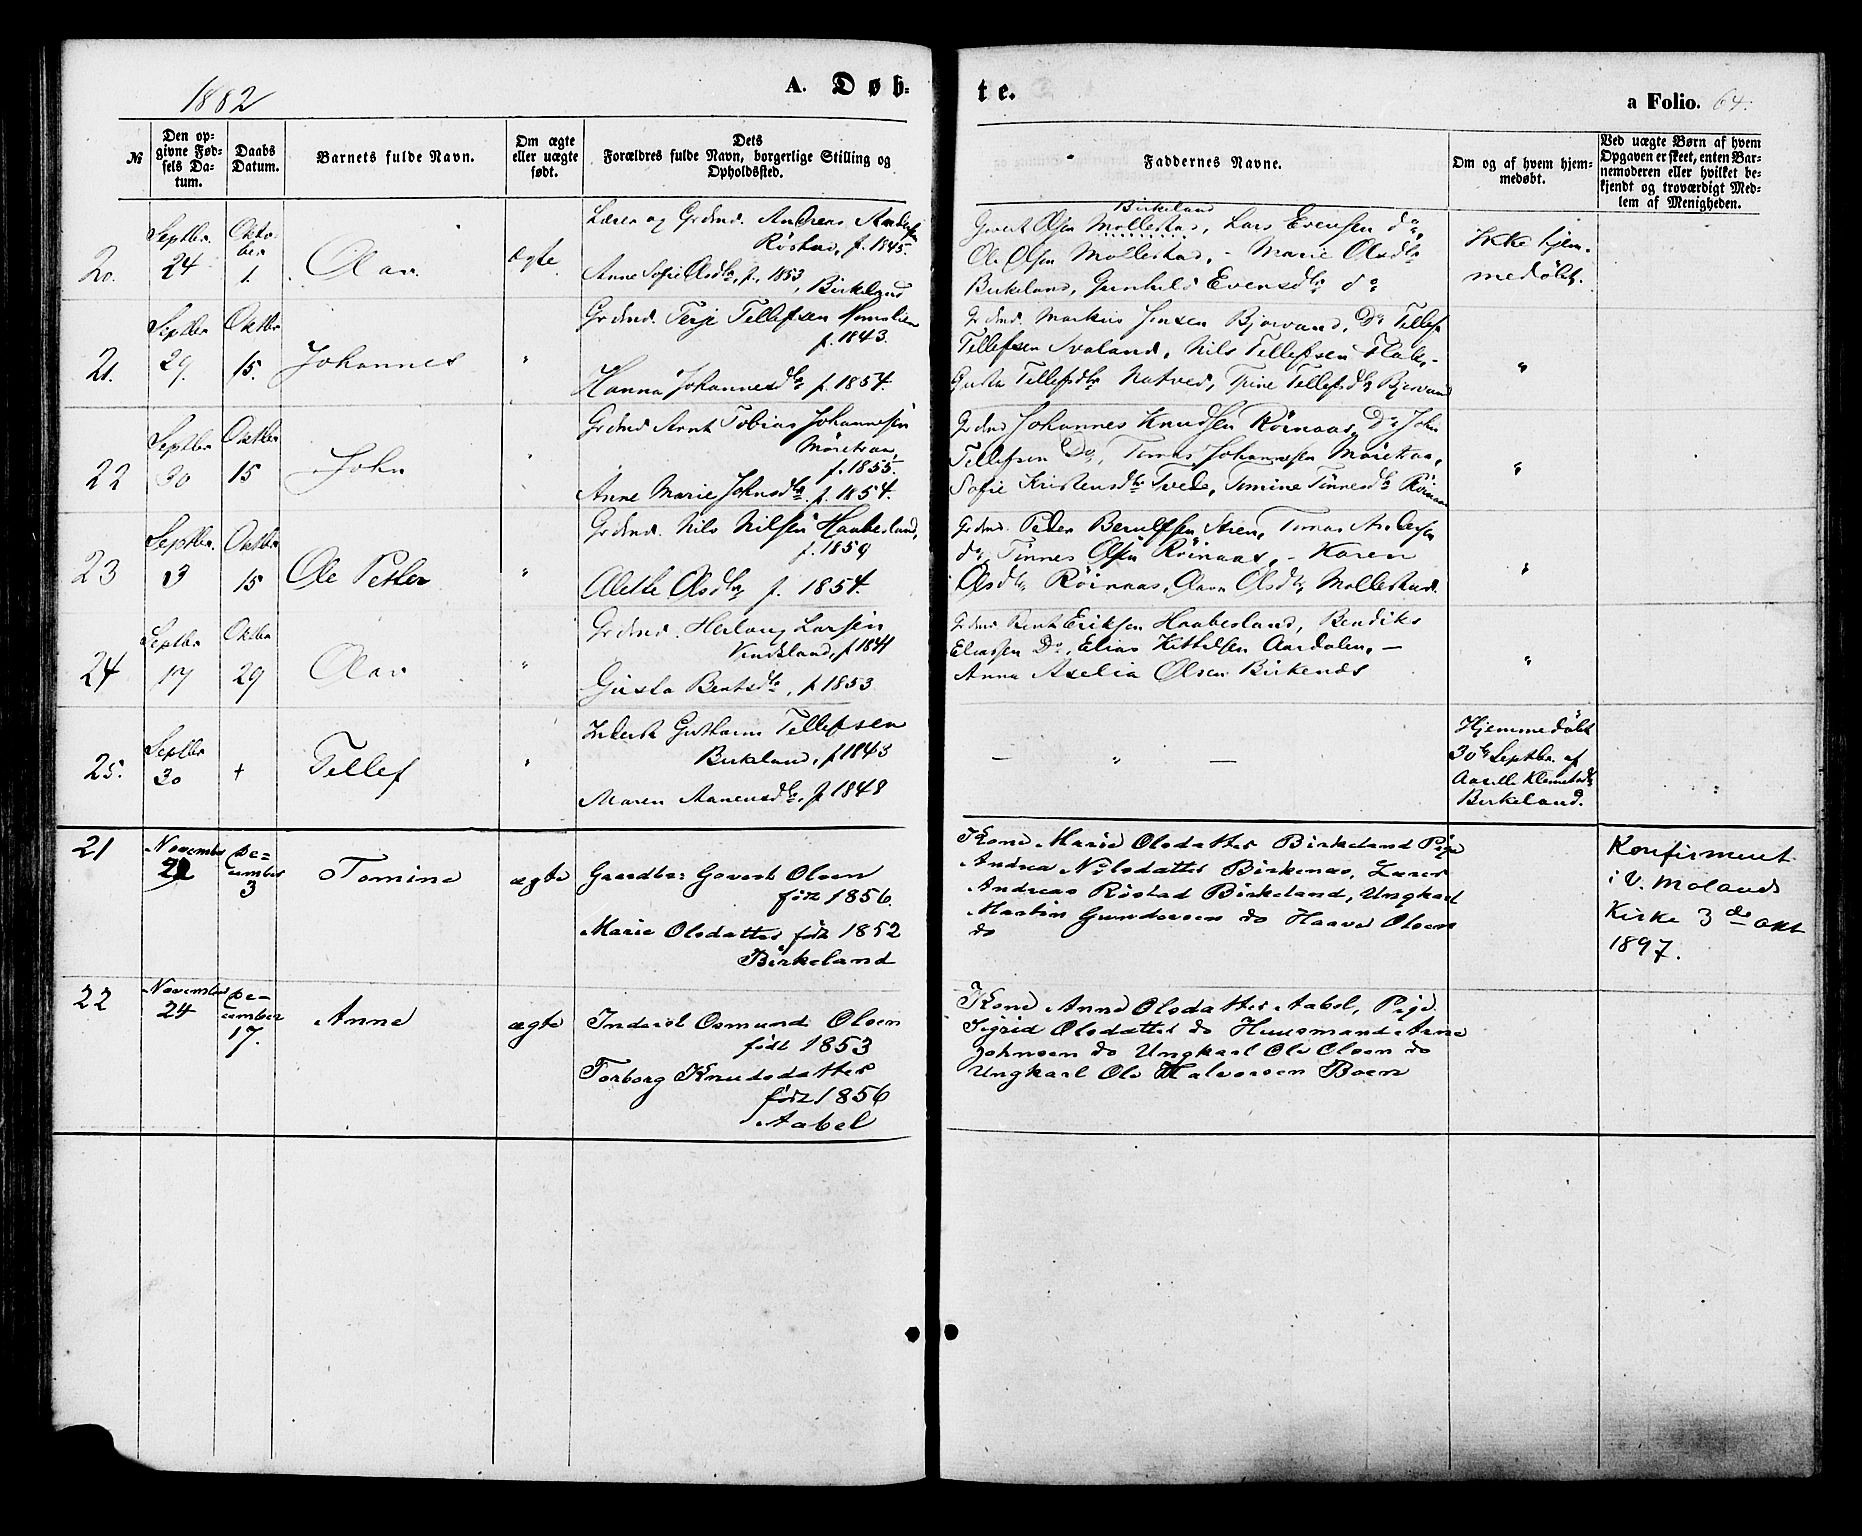 1882
A. Døb-
te.
a Folio. 64.
№
Den op-
givne Fød-
sels Da-
tum.
Daabs
Datum.
Barnets fulde Navn.
Om ægte
eller uægte
født.
Dets
Forældres fulde Navn, borgerlige Stilling og
Opholdssted.
Faddernes Navne.
Om og af hvem hjem-
medøbt.
Ved uægte Børn af hvem
Opgaven er skeet, enten Bar-
nemoderen eller hvilket be-
kjendt og troværdigt Med-
lem af Menigheden.
20.
Septbr.
24
Okto-
ber
1.
Olav
ægte
Lærer og Grdmd. Andreas Anders
Røstad, f. 1845.
Anne Sofie Olsdtr, f. 1853,
Birkeland
Birkeland
Govert Olsen Mollestad, Lars Evensen do,
Ole Olsen Mollestad, - Marie Olsdtr
Birkeland, Gunhild Evensdtr do
Ikke hjem-
medøbt.
21.
Septbr
29.
Oktbr
15.
Johannes
"
Grdmd. Terje Tellefsen
f. 1843.
Hanna Johannesdtr f. 1854.
Grdmd. Markus Jensen Bjorvand, Do Tellef
Tellefsen Svaland, Nils Tellefsen Flake,-
Gusta Tellefsdtr Natved, Trine Tellefsdtr Bjorvand
"
22
Septbr
30
Oktbr
15
John
"
Grdmd Arnt Tobias Johannesen
Møretraa,
f. 1855.
Anne Marie Johnsdtr. f. 1854.
Grdmd Johannes Knudsen Røinaas, Do John
Tellefsen Do, Tomas Johannesen Møretraa,
Sofie Kristensdtr Tvede, Tomine Tønnesdtr Røinaas
"
23
Septbr.
13
Oktbr
15
Ole Petter
"
Grdmd. Nils Nilsen Haabesland,
f. 1859
Alette Olsdtr f. 1854.
Grdmd. Peder Berulfsen Aren, Tomas Andersen
do, Tønnes Olsen Røinaas, - Karen
Olsdtr Røinaas, Olava Olsdtr Mollestad.
"
24
Septbr
17
Oktbr
29
Olav
"
Grdmd. Herlaug Larsen
Vindsland, f 1844
Gusta Bentsdtr, f 1853
Grdmd Bent Eriksen Haabesland, Bendiks
Eliassen Do, Elias Kittilsen Aardalen, -
Anna Axelia Olsen Birkenes
"
25.
Septbr
30
+
Tellef
"
Inderst Guttorm Tellefsen
Birkeland, f 1843
Maren Aanensdtr, f 1848
- " -
Hjemmedøbt
30te Septbr. af
Aasille Klemetsdtr
Birkeland.
"
21
November
21
De-
cember
3
Tomine
ægte
Gaardbr: Govert Olsen
født 1856.
Marie Olsdatter født 1852
Birkeland
Kone Marie Olsdatter Birkeland Pige
Andrea Nilsdatter Birkenæs, Lærer
Andreas Røstad Birkeland, Ungkarl
Martin Gundersen do Haavel Olsen
do
Konfirmeret
i V. Molands
Kirke 3die okt
1897.
22
November
24
De-
cember
17.
Anne
ægte
Inderst Osmund Olsen
født 1853
Torborg Knudsdatter
født 1856
Aabel
Kone Anne Olsdatter Aabel, Pige
Sigrid Olsdatter do Huusmand Arne
Johnsen do Ungkarl Ole Olsen do
Ungkarl Ole Halvorsen Boen